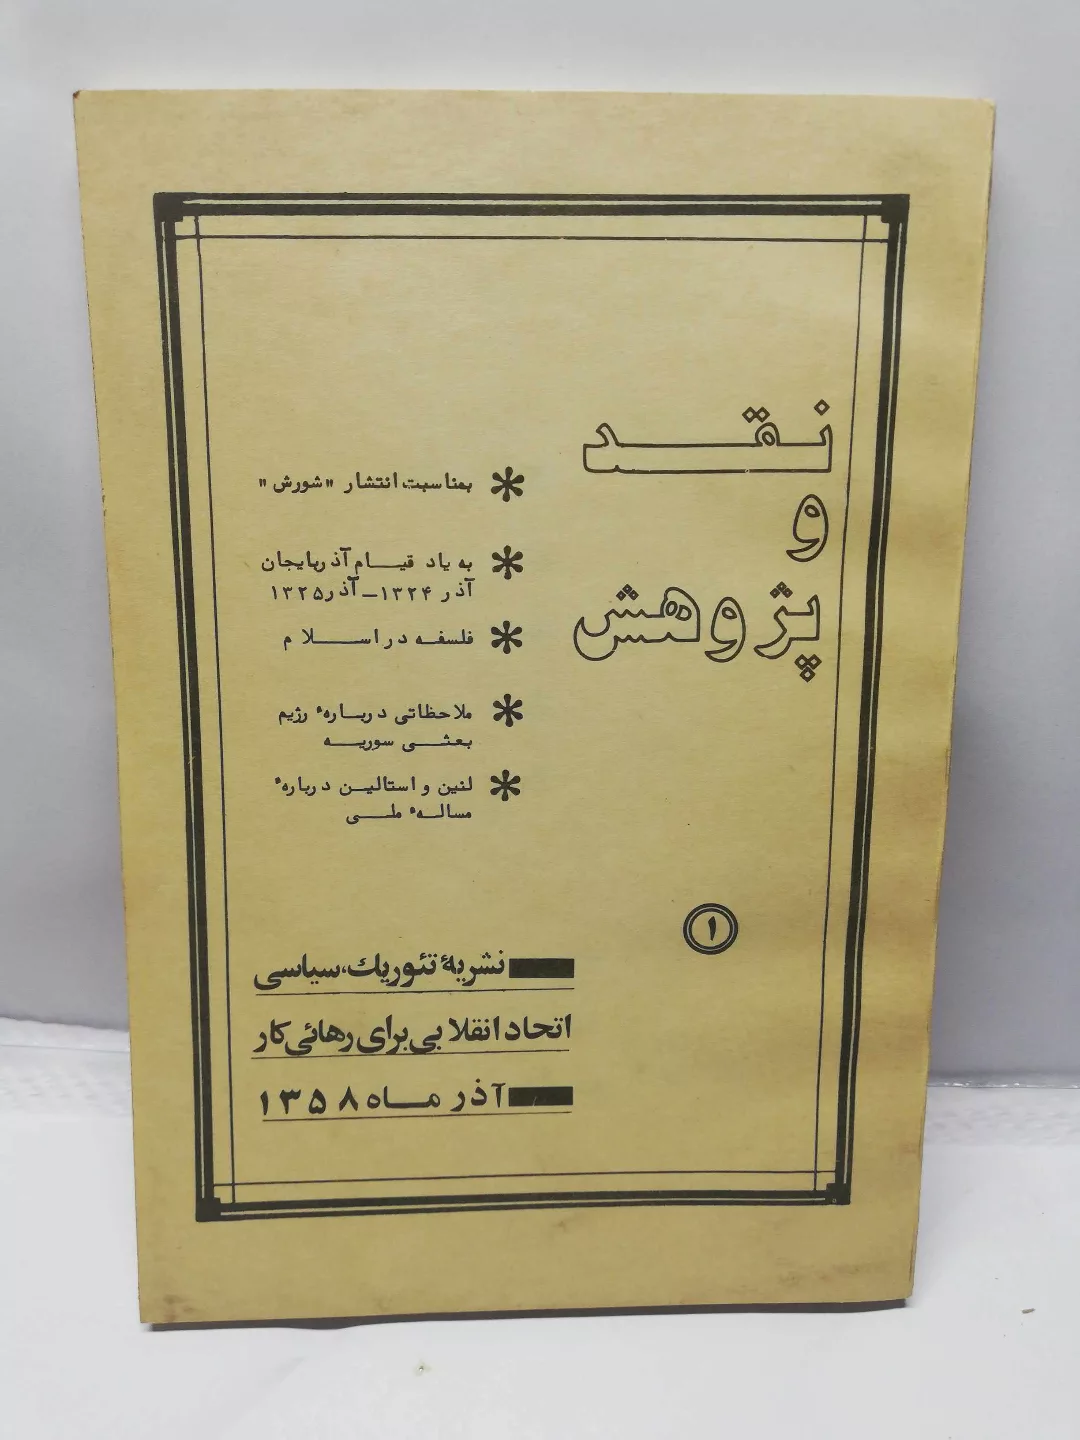 نقد
و
پژوهش
بمناسبت انتشار "شورش"
به یاد قیام آذربایجان
آذر ۱۳۲۴ـ آذر ۱۳۲۵
فلسفه در اسلام
ملاحظاتی درباره‌ٔ رژیم
بعثی سوریه
لنین و استالین درباره‌ٔ
مساله‌ٔ ملی
۱
نشریهٔ تئوریك، سیاسی
اتحاد انقلابی برای رهائی کار
آذر ماه ۱۳۵۸